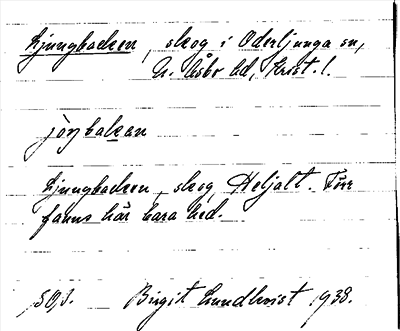 Ljungbacken, skog i Oderljunga sn,
N. Åsbo hd, Krist. l.
jö̀ŋbakan
Ljungbacken, skog, Heljalt. Förr
fanns här bara hed.
SOJ. Birgit Lundkvist 1938.